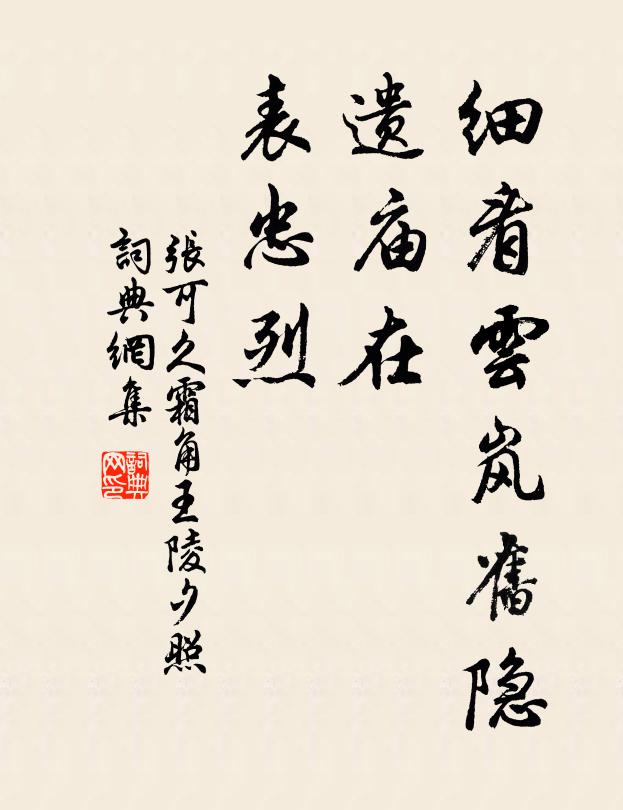 细看雲岚舊隐
遗庙在
表忠烈
張可久霜角王陵夕照
詞典網集
詞典网印